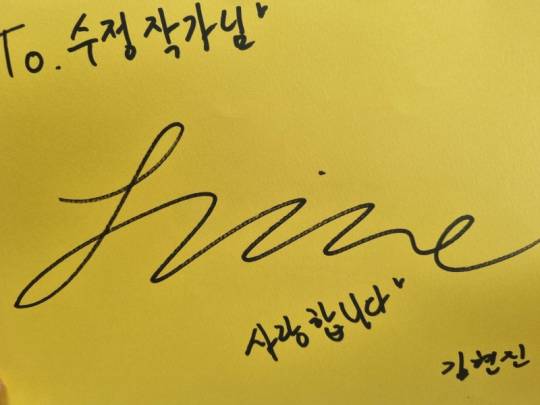 To. 수정 작가님"
사랑합니다"
김현진